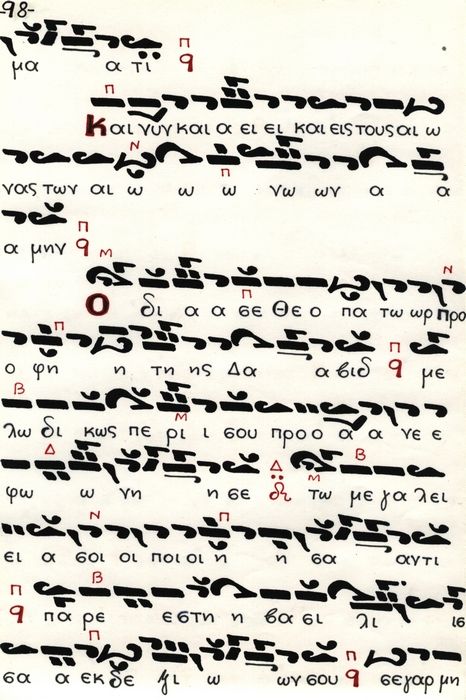 -98-
μα α τι π q
π
Και νυν και α ει ει και εις τους αι ω
Ν π
νας των αι ω ω ω νω ων α α
π
α μην q
Μ π Ν
Ο δι α α σε Θε ο πα τω ωρ προ
π π
ο φη η τη ης Δα α βιδ q με
Β Μ
λω δι κως πε ρι ι σου προ ο α α νε ε
Δ Δ Μ Β
φω ω νη η σε δι τω με γα λει
Ν π
ει α σοι οι ποι οι η η σα αντι
π Β
q πα ρε ε στη η βα σι λι ισ
π π
σα α εκ δε ξι ω ων σου q σε γαρ μη